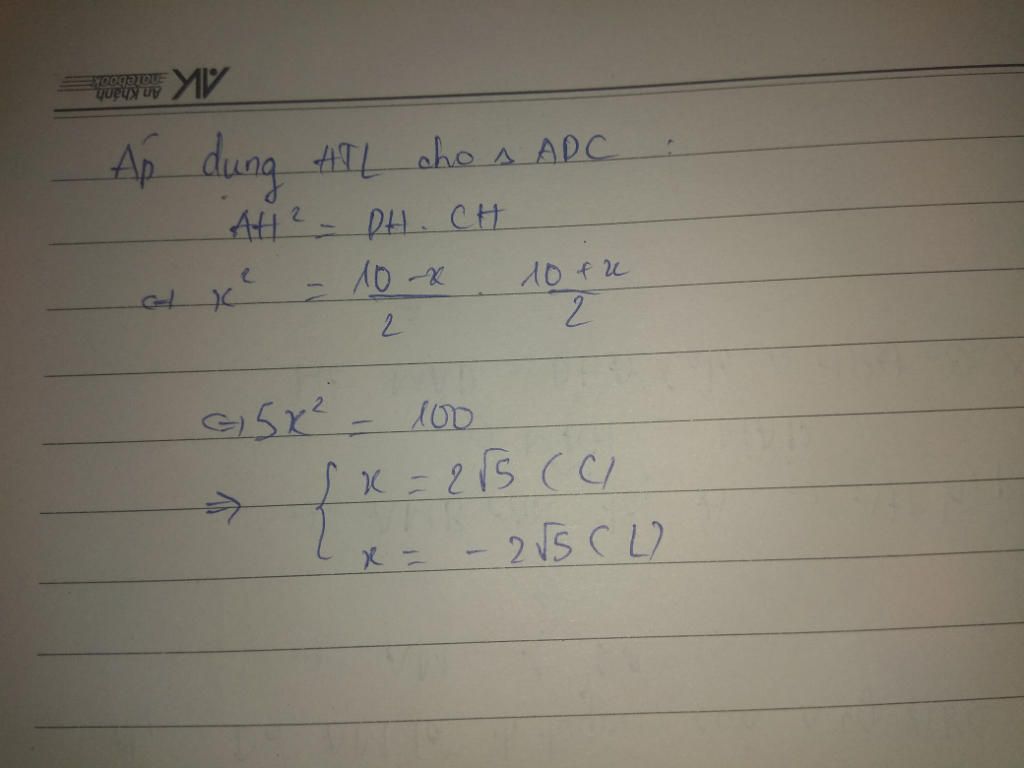 An Khánh
notebook
AK
Áp dụng HTL cho △ ADC :
AH² = DH . CH
⇔ x² = \frac{10 - x}{2} . \frac{10 + x}{2}
⇔ 5x² = 100
⇒ { x = 2√5 (C)
x = - 2√5 (L)